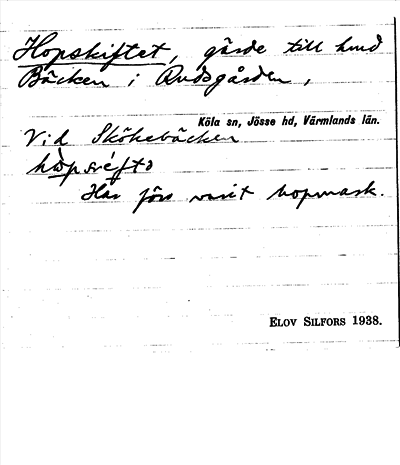 Hopskiftet, gärde till hmd
Bäcken i Rudsgården,
Köla sn, Jösse hd, Värmlands län.
Vid Skökebäcken
Här förr varit hopmark.
ELOV SILFORS 1938.